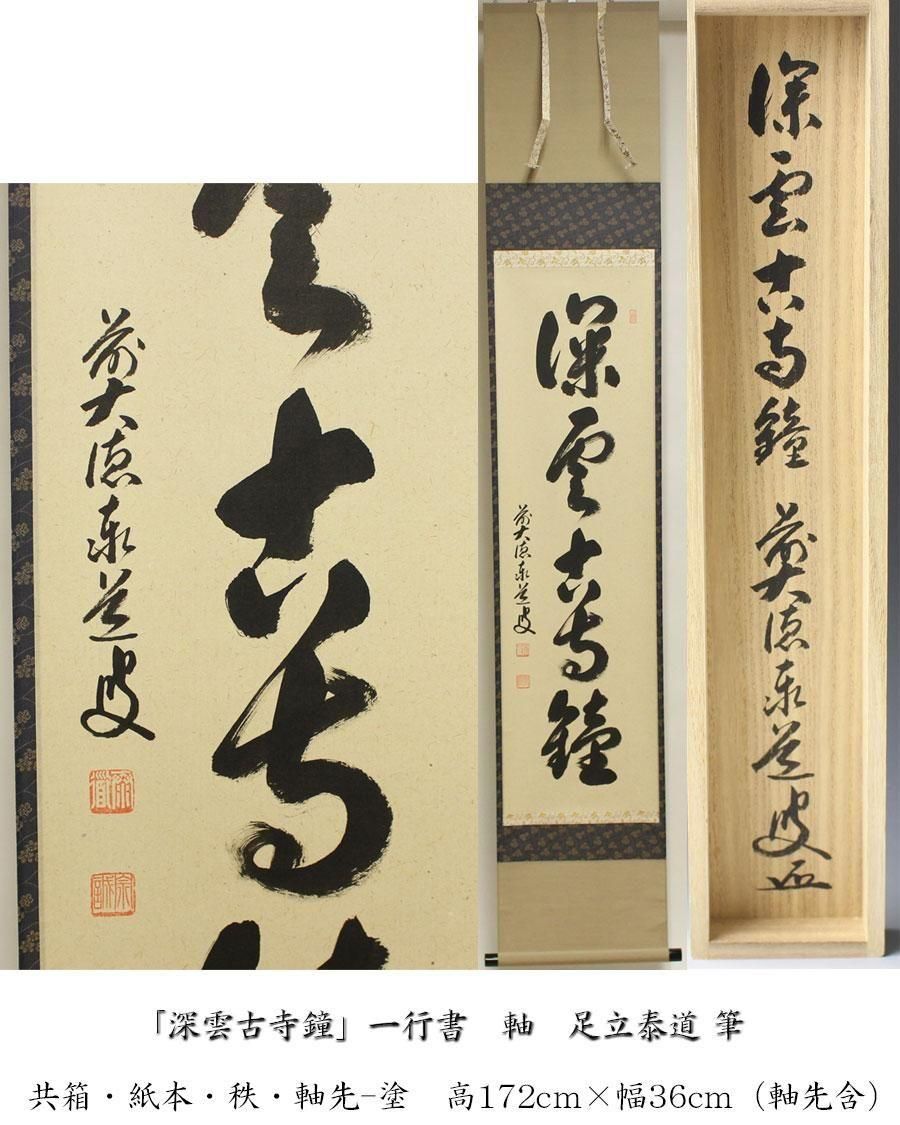 前大徳泰道叟
古寺
深雲古寺鐘
前大徳泰道叟
深雲古寺鐘 前大徳泰道叟
「深雲古寺鐘」一行書　軸　足立泰道 筆
共箱・紙本・秩・軸先-塗　高172cm×幅36cm（軸先含）